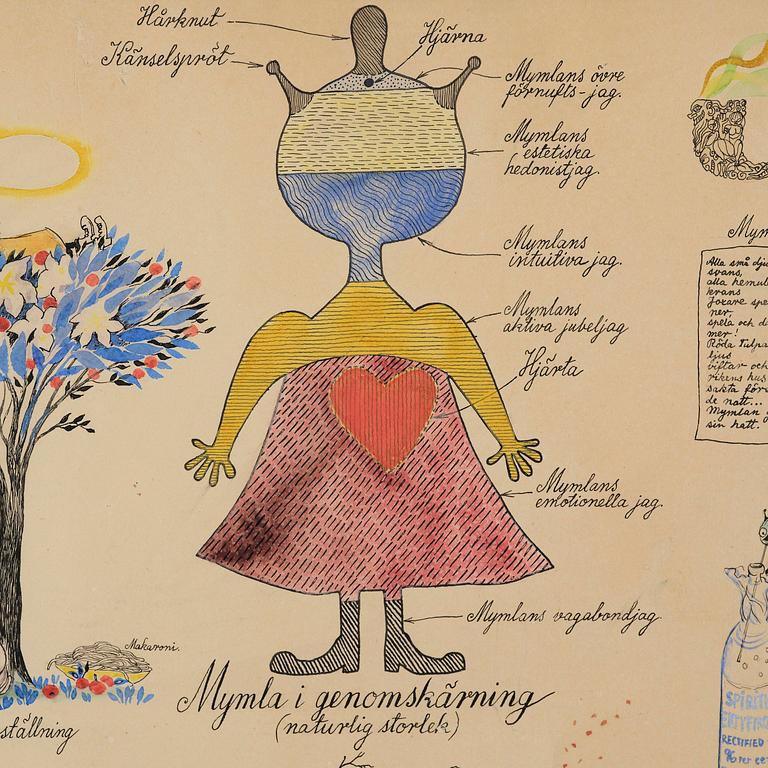 Hårknut
Känselspröt
Hjärna
Mymlans övre
förnufts-jag.
Mymlans
estetiska
hedonistjag.
Mymlans
intuitiva jag.
Mymlans
aktiva jubeljag
Hjärta
Mymlans
emotionella jag.
Mymlans vagabondjag
Mymla i genomskärning
(naturlig storlek)
Makaroni.
ställning
Mym
Alla små dju
svans,
alla hemul
krans
spela och d
mer!
Röda Tulpa
ljus
viftar och
rikens hus
sakta för
de natt...
Mymlan
sin hatt.
SPIRIT
RECTIFIED